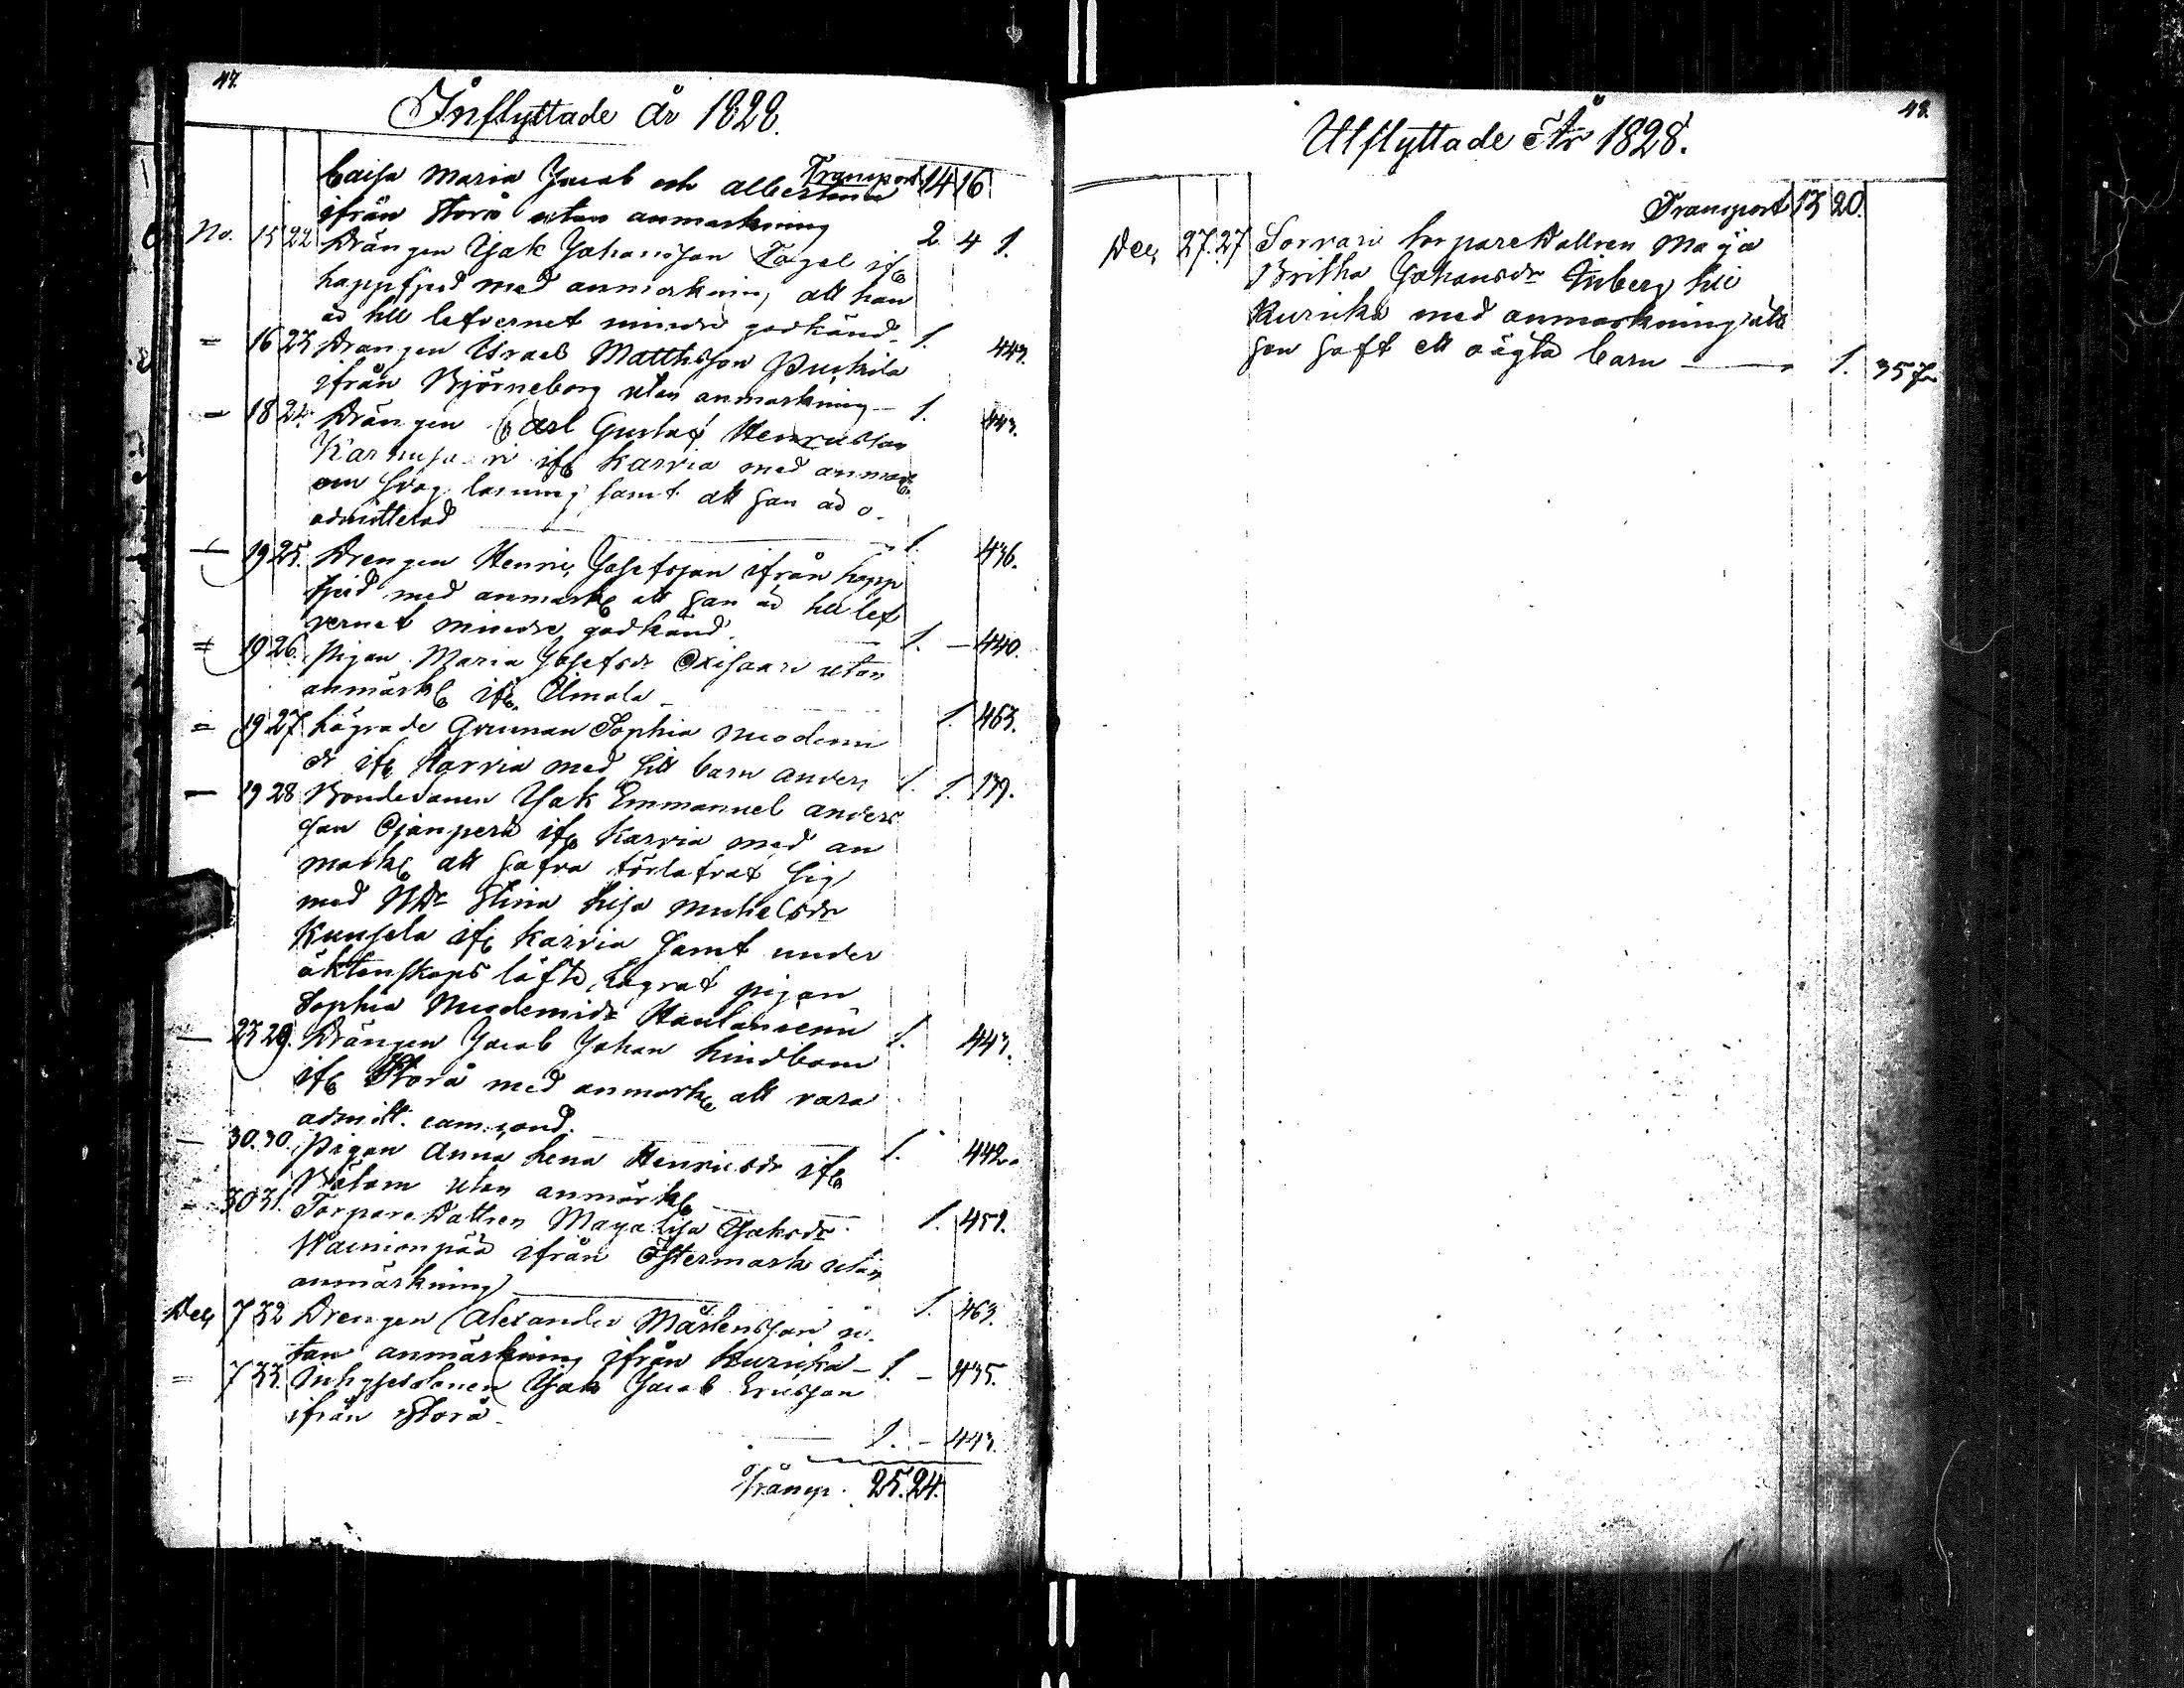 47.
Inflyttade år 1828.
Transport 14 16
Caisa Maria Jacob och Albertina
ifrån Storå utan anmärkning 2 4 1.
No. 15 22 Drängen Isak Johansson Tagel ifr
Lappfjerd med anmärkning att han
är till lefvernet mindre godkänd 1. 443.
= 16 23 Drängen Israel Matthsson Puskila
ifrån Björneborg utan anmärkning 1. 443.
= 18 24. Drängen Carl Gustaf Henricsson
ifr Karvia med anmärk
om svag läsning samt att han är o-
admitterad 1. 436.
— 19 25. Drengen Henric Josefsson ifrån Lapp
fjerd med anmärk att han är till lef
vernet mindre godkänd. 1. — 440.
= 19 26. Pigan Maria Josefsdr Oxisaari utan
anmärk ifr Ilmola 1. 463.
= 19 27. Lägrade Qvinnan Sophia Nicodemi
dr ifr Karvia med sitt barn Anders 1. 1. 139.
— 19 28 Bondesonen Isak Emmanuel Anders
son Ojanperä ifr Karvia med an
märk att hafva förlofvat sig
med BDr Stina Lisa Michelsdr
Kunsela ifr Karvia samt under
äktenskaps löfte lägrat pigan
Sophia Nicodemidr 1. 443.
— 23 29. Drängen Jacob Johan Lindbom
ifr Storå med anmärk att vara
admitt. 1. 442.
— 30. 30. Pigan Anna Lena Henricsdr ifr
utan anmärk 1. 451.
— 30 31. Torpare Dottren Maja Lisa Isaksdr
Wainionpää ifrån Östermark utan
anmärkning 1. 463.
Dec 7 32 Drengen Alexander Mårtensson u-
tan anmärkning ifrån Kurikka — 1. — 435.
= 7 33. Inhysessonen Isak Jacob Ericsson
ifrån Storå 1. — 443.
Transp. 25. 24.
48.
Utflyttade År 1828.
Transport 13 20.
Dec 27. 27 Sorvari torpare Dottren Maja
Britha Johansdr till
Kurikka med anmärkning att
hon haft ett oägta barn — 1. 357